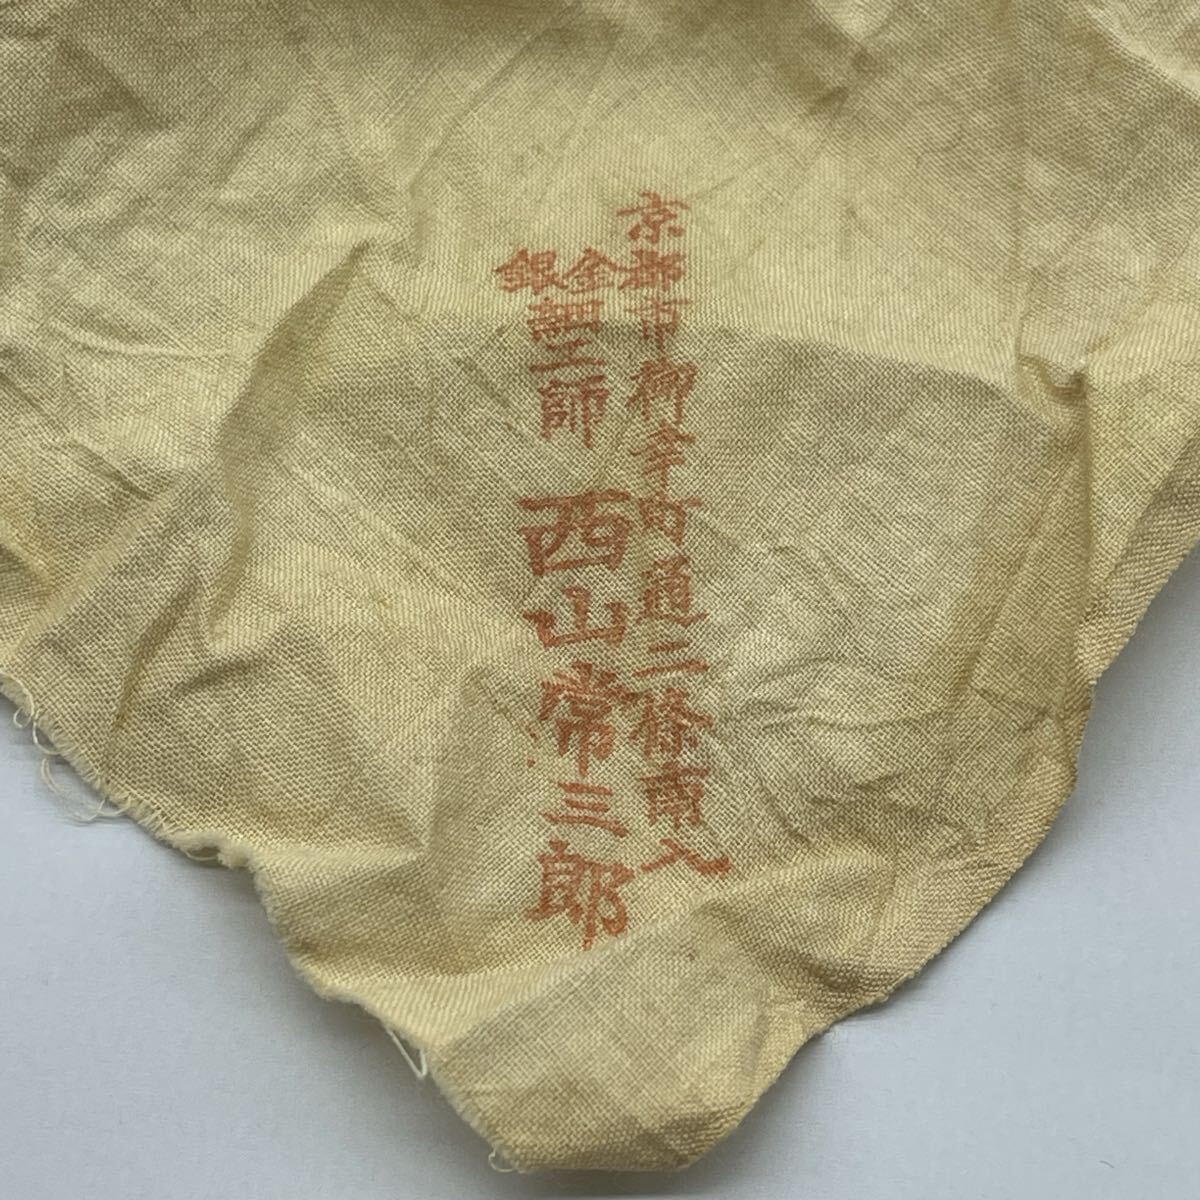 京都市御幸町通二條南入
金銀細工師 西山常三郎